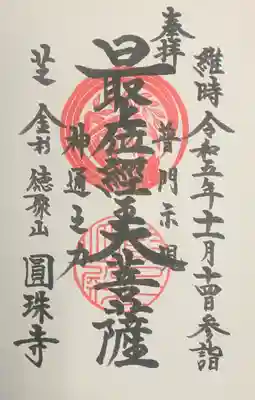 維時 令和五年十一月十四日 参詣
奉拝
普門示現
最上位經王大菩薩
神通之力
芝 金杉 徳聚山 圓珠寺